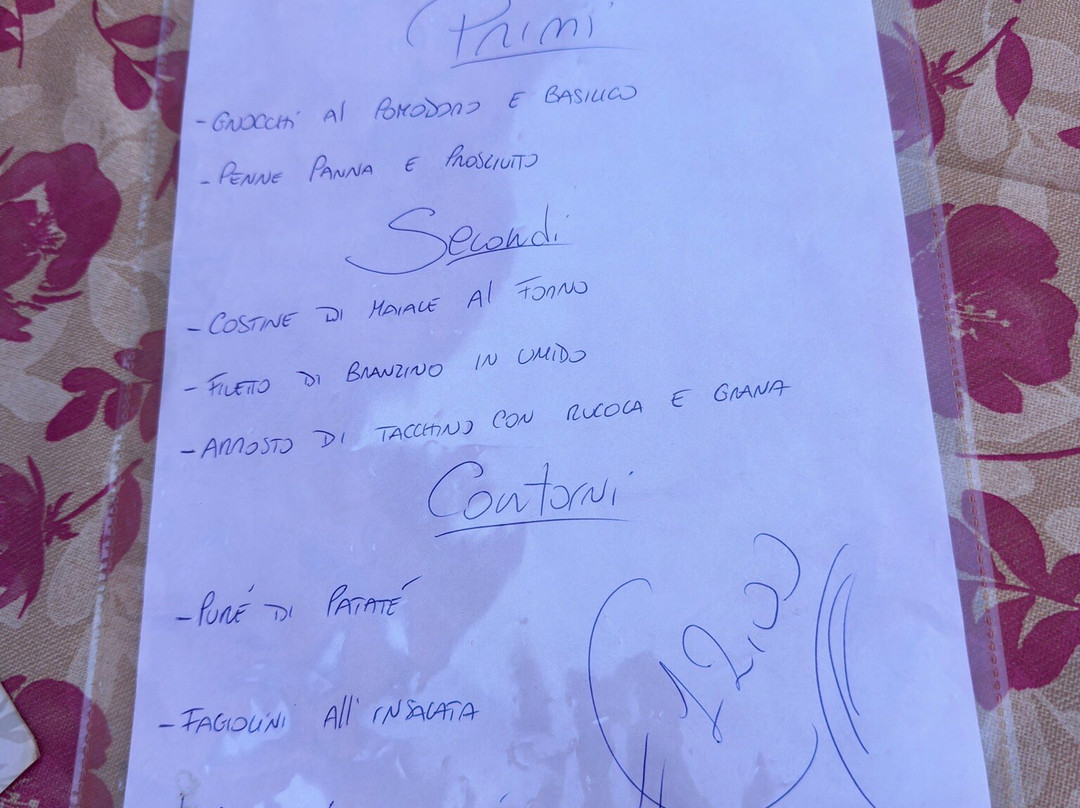 Primi
- GNOCCHI Al POMODORO E BASILICO
- PENNE PANNA E PROSCIUTTO
Secondi
- COSTINE DI MAIALE Al FORNO
- FILETTO DI BRANZINO IN UMIDO
- ARROSTO DI TACCHINO CON RUCOLA E GRANA
Contorni
- PURÉ DI PATATÉ
- FAGIOLINI All' INSALATA
12,00